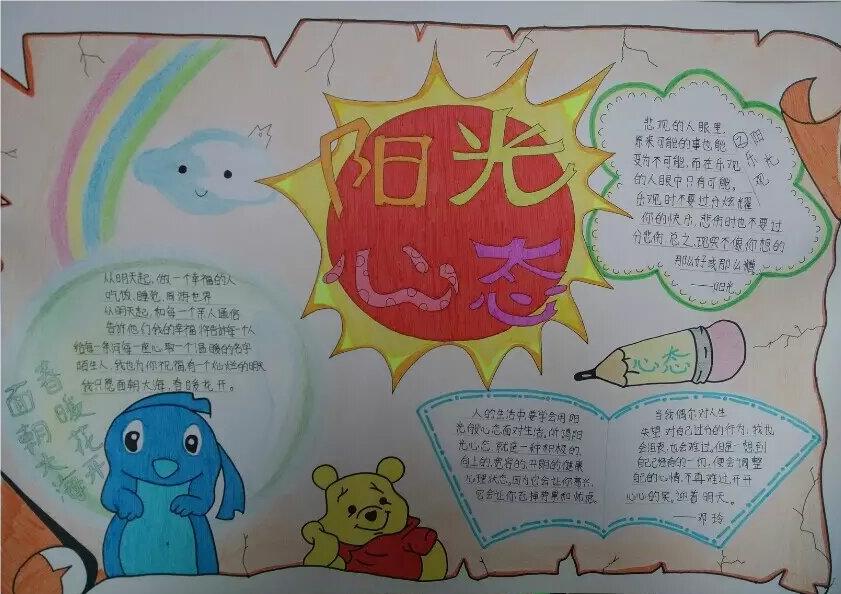 阳光
心态
从明天起,做一个幸福的人
吃饭、睡觉、周游世界
从明天起,和每一个亲人通信
告诉他们我的幸福
给每一条河每一座山取一个温暖的名字
陌生人,我也为你祝福,有一个灿烂的明天
我只愿面朝大海,春暖花开。
面朝大海
春暖花开
悲观的人眼里,
原来可能的事也能
变为不可能,而在乐观
的人眼中只有可能。
乐观时不要过分炫耀
你的快乐,悲伤时也不要过
分悲伤,总之,现实不像你想的
那么好或那么糟
——阳光
阳光
乐观
心态
人的生活中要学会用阳
光的心态面对生活,所谓阳
光心态,就是一种积极的、
向上的、宽容的、开朗的健康
心理状态。因为它会让你高兴,
它会让你忘掉劳累和忧虑
当我偶尔对人生
失望,对自己过分的行为,我也
会沮丧,也会难过,但是一想到
自己拯救的一切,便会调整
自己的心情,不再难过,开开
心心的笑,迎着明天。
——邓玲